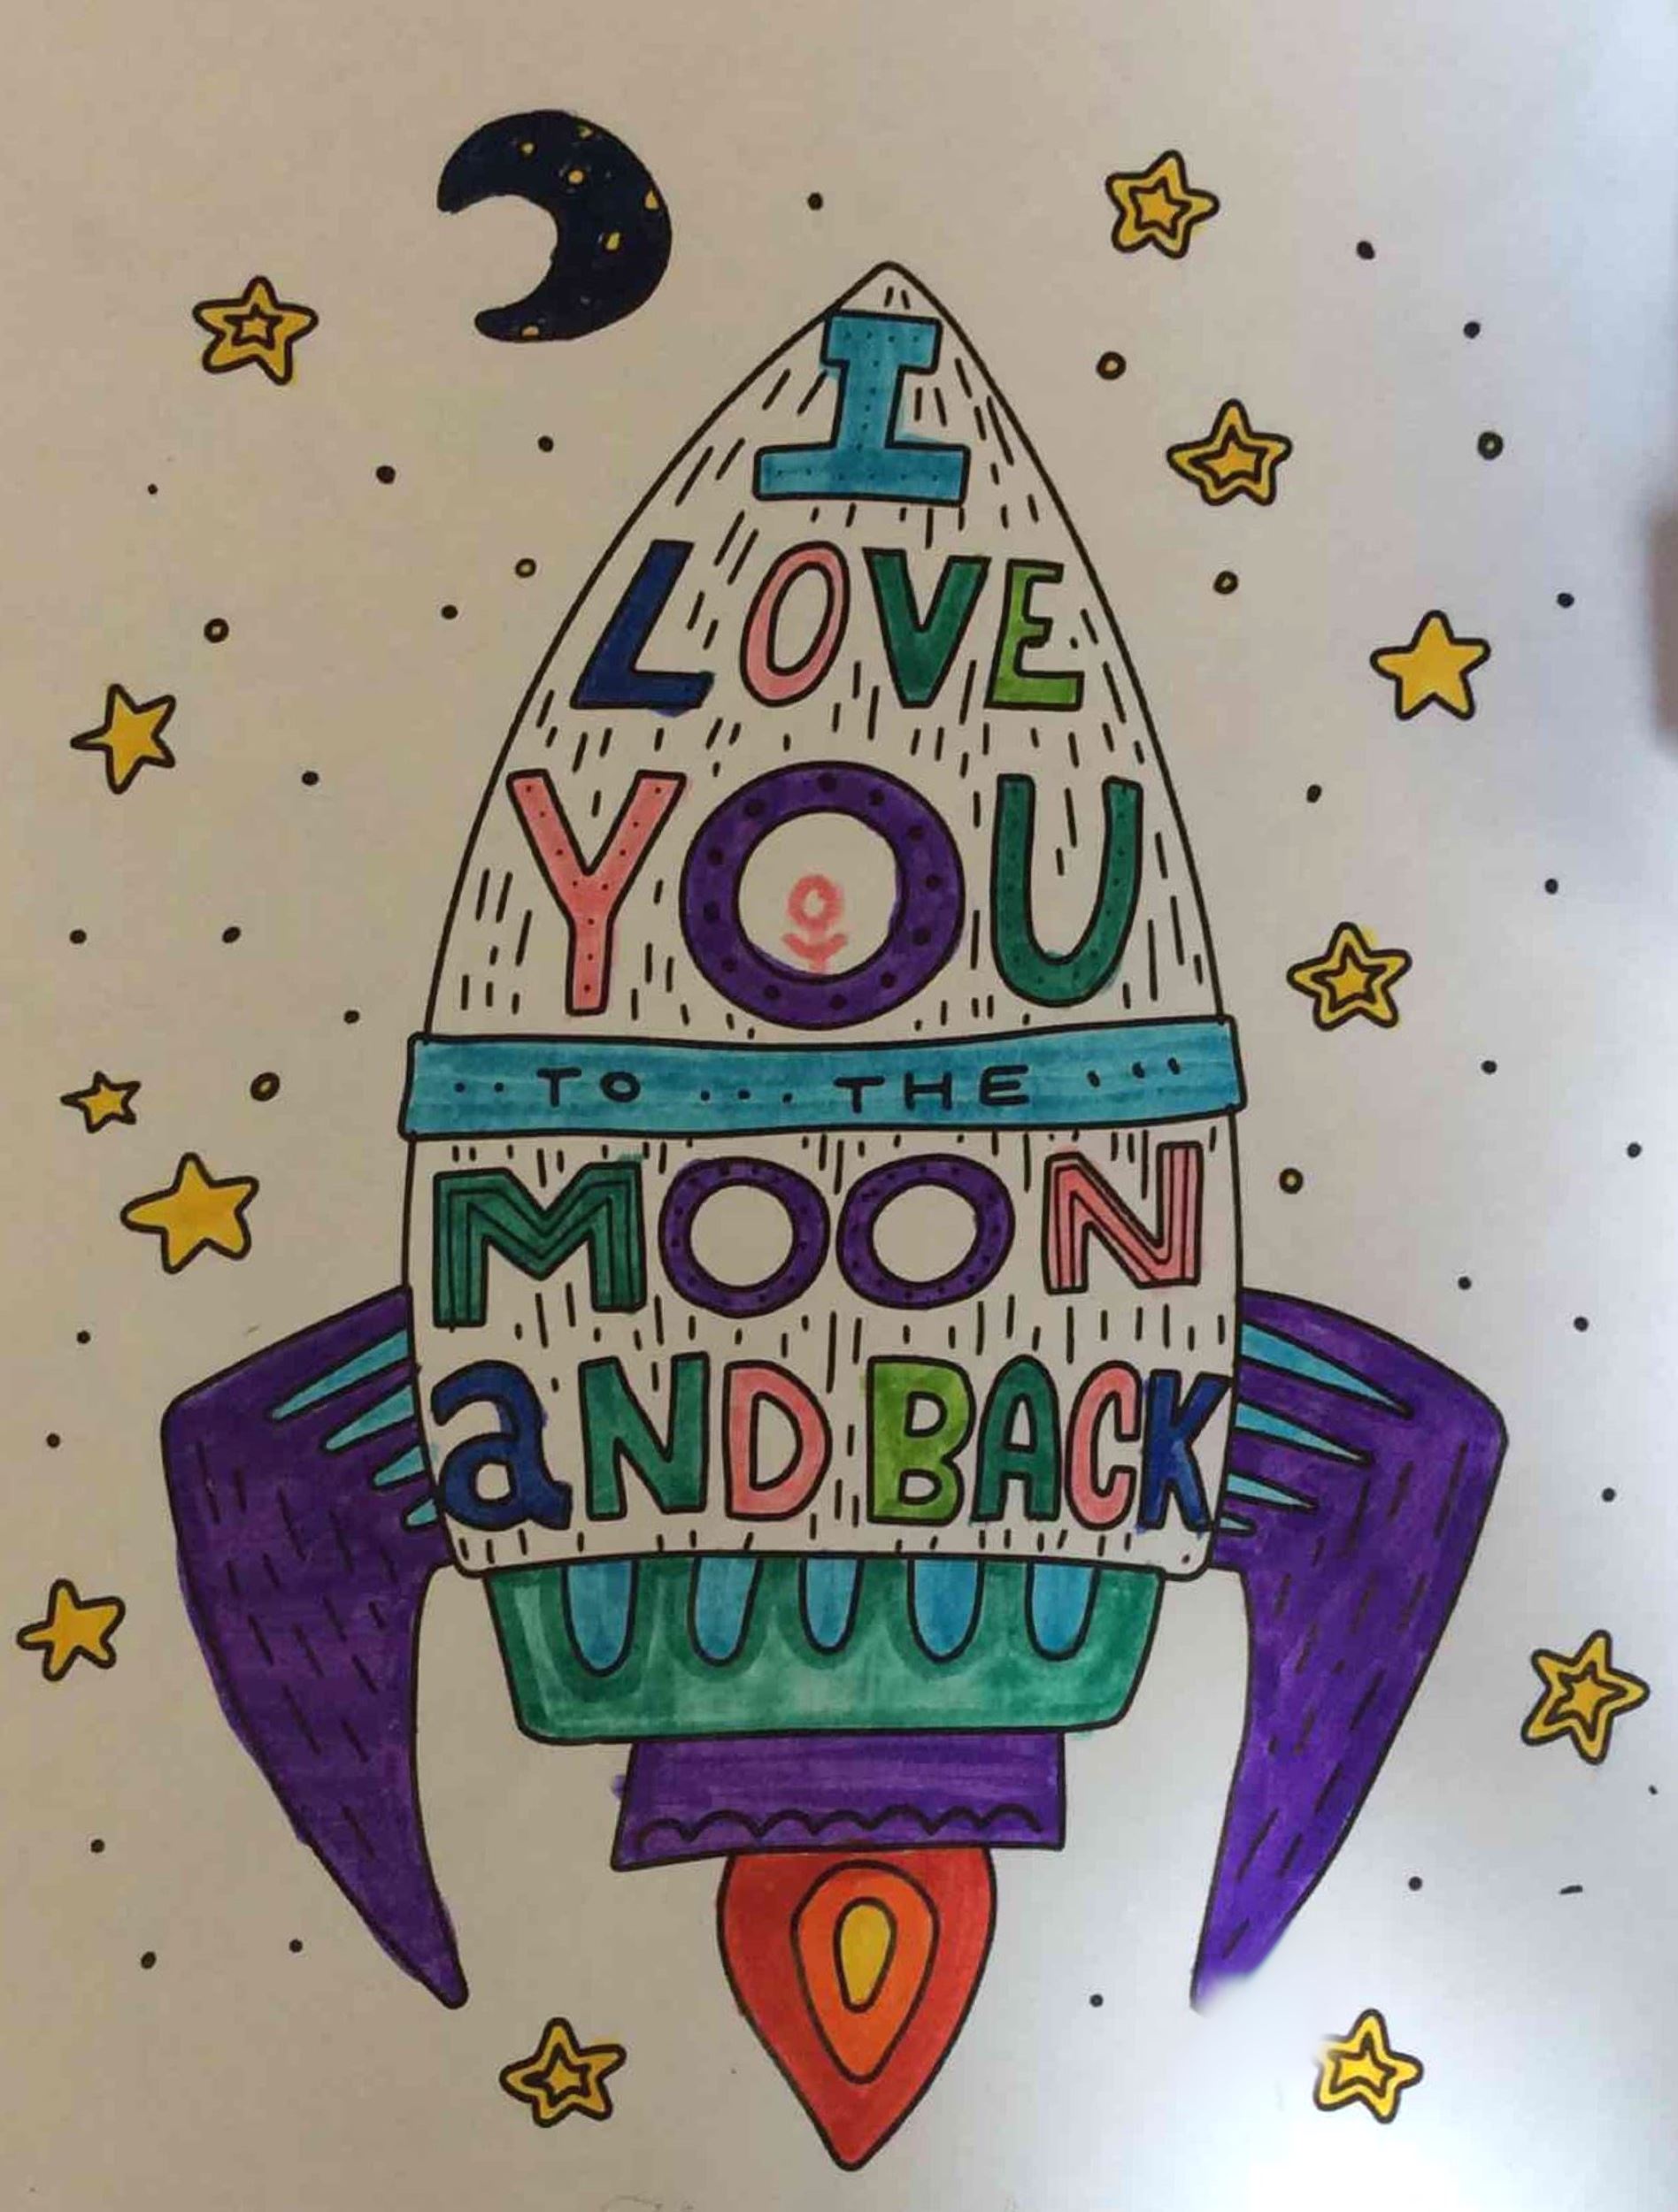 I
LOVE
YOU
TO THE
MOON
aND BACK